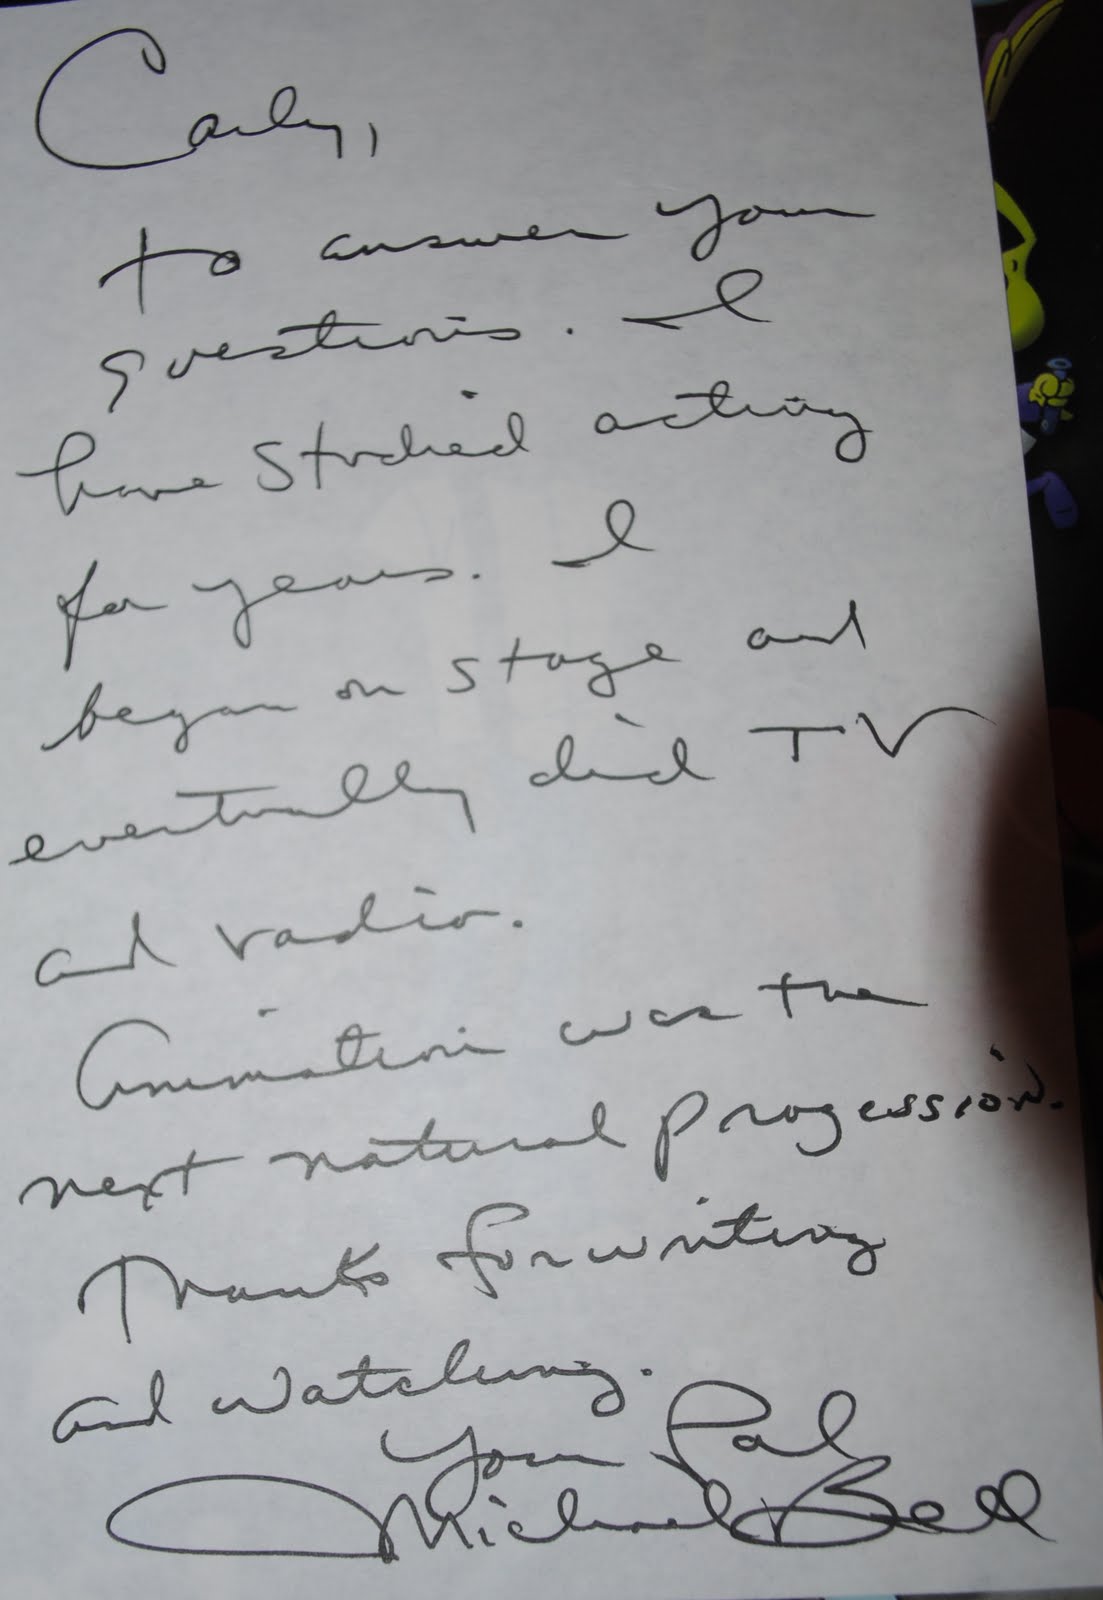 Carly,
to answer your
questions. I
have studied acting
for years. I
began on stage and
eventually did TV
and radio.
Animation was the
next natural progession.
Thanks for writing
and watching.
Your Pal
Michael Bell